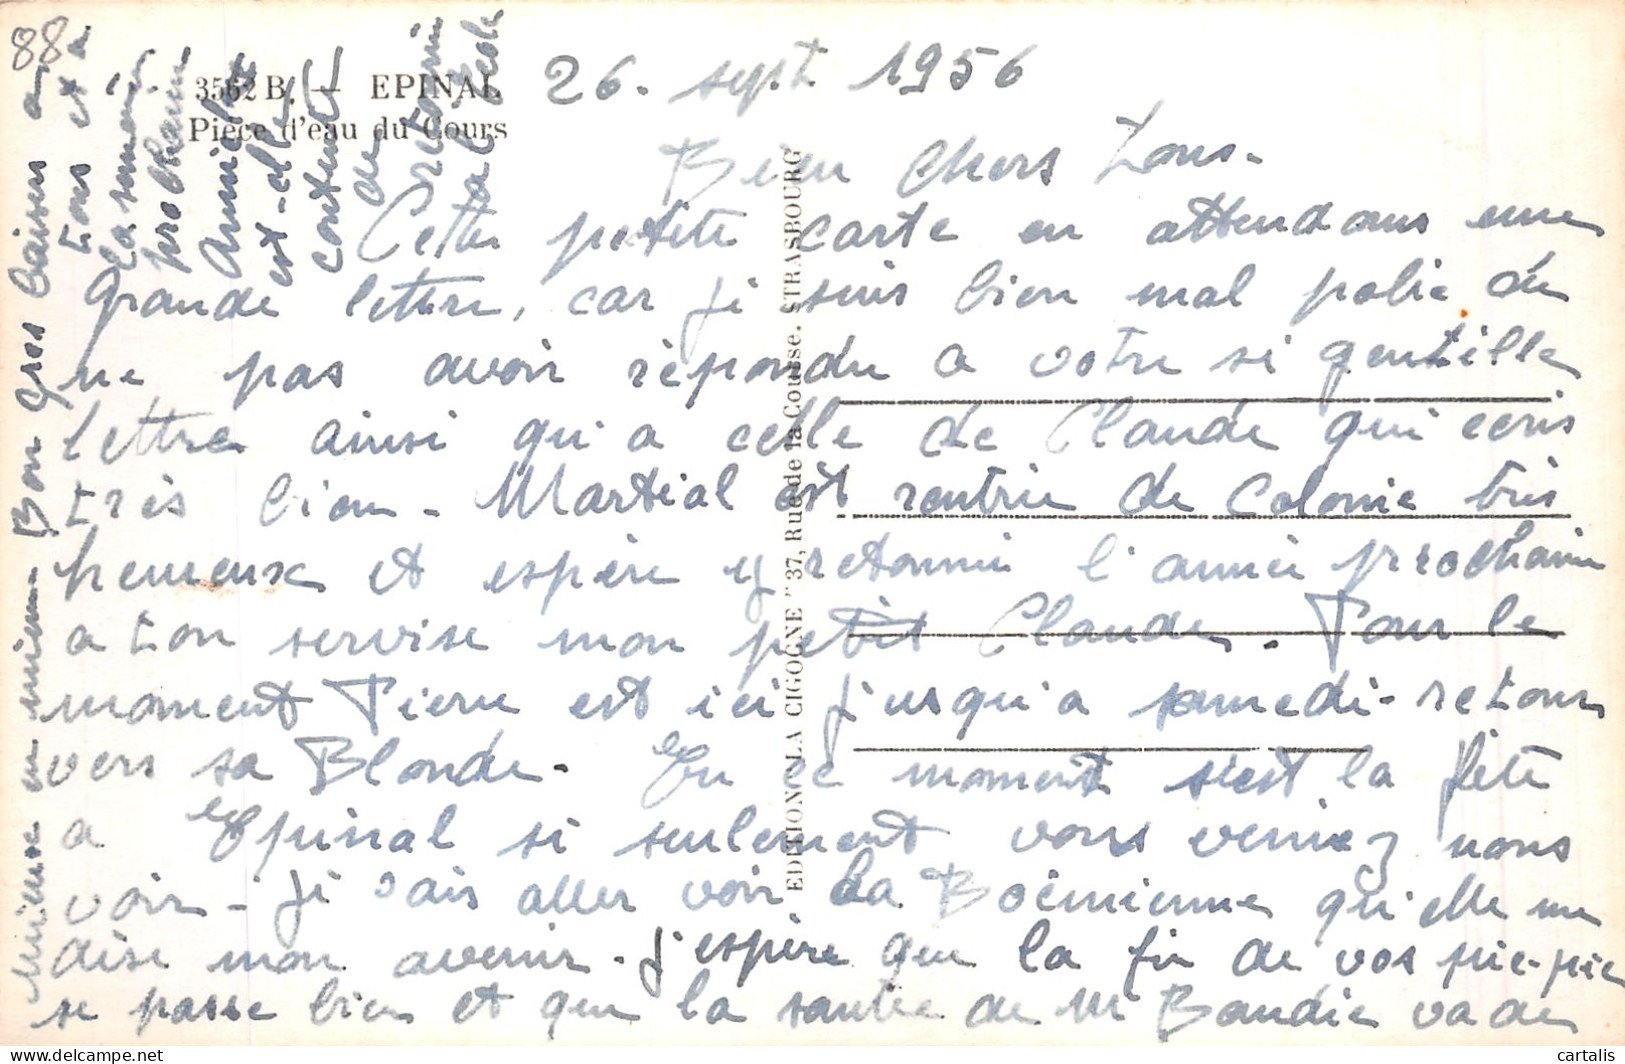 88
3562 B. — EPINAL
Pièce d'eau du Cours
26. sept 1956
Bien Chers Tous.
Cette petite carte en attendans une
Grande lettre, car je suis bien mal polie de
ne pas avoir répondu a votre si gentille
lettre ainsi qu'a celle de Claude qui ecris
très bien - Martial est rentrée de Colonie très
heureux et espère y retourner l'année prochaine
a ton servise mon petit Claude. Pour le
moment Pierre est ici jusqu'a samedi - retour
vers sa Blonde - En ce moment s'est la fête
a Epinal si seulement vous veniez nous
voir - Je vais aller voir La Boémienne qu'elle me
dise mon avenir - J'espère que la fin de vos pic-pic
se passe bien et que la santée de M Baudie va de
Mieux en mieux. Bon Gros baisers a
tous et a
la semaine
prochaine
est-elle
contente
de
retourner
a l'école
EDITION "LA CIGOGNE" 37, Rue de la Cousse. STRASBOURG
cartalis
delcampe.net